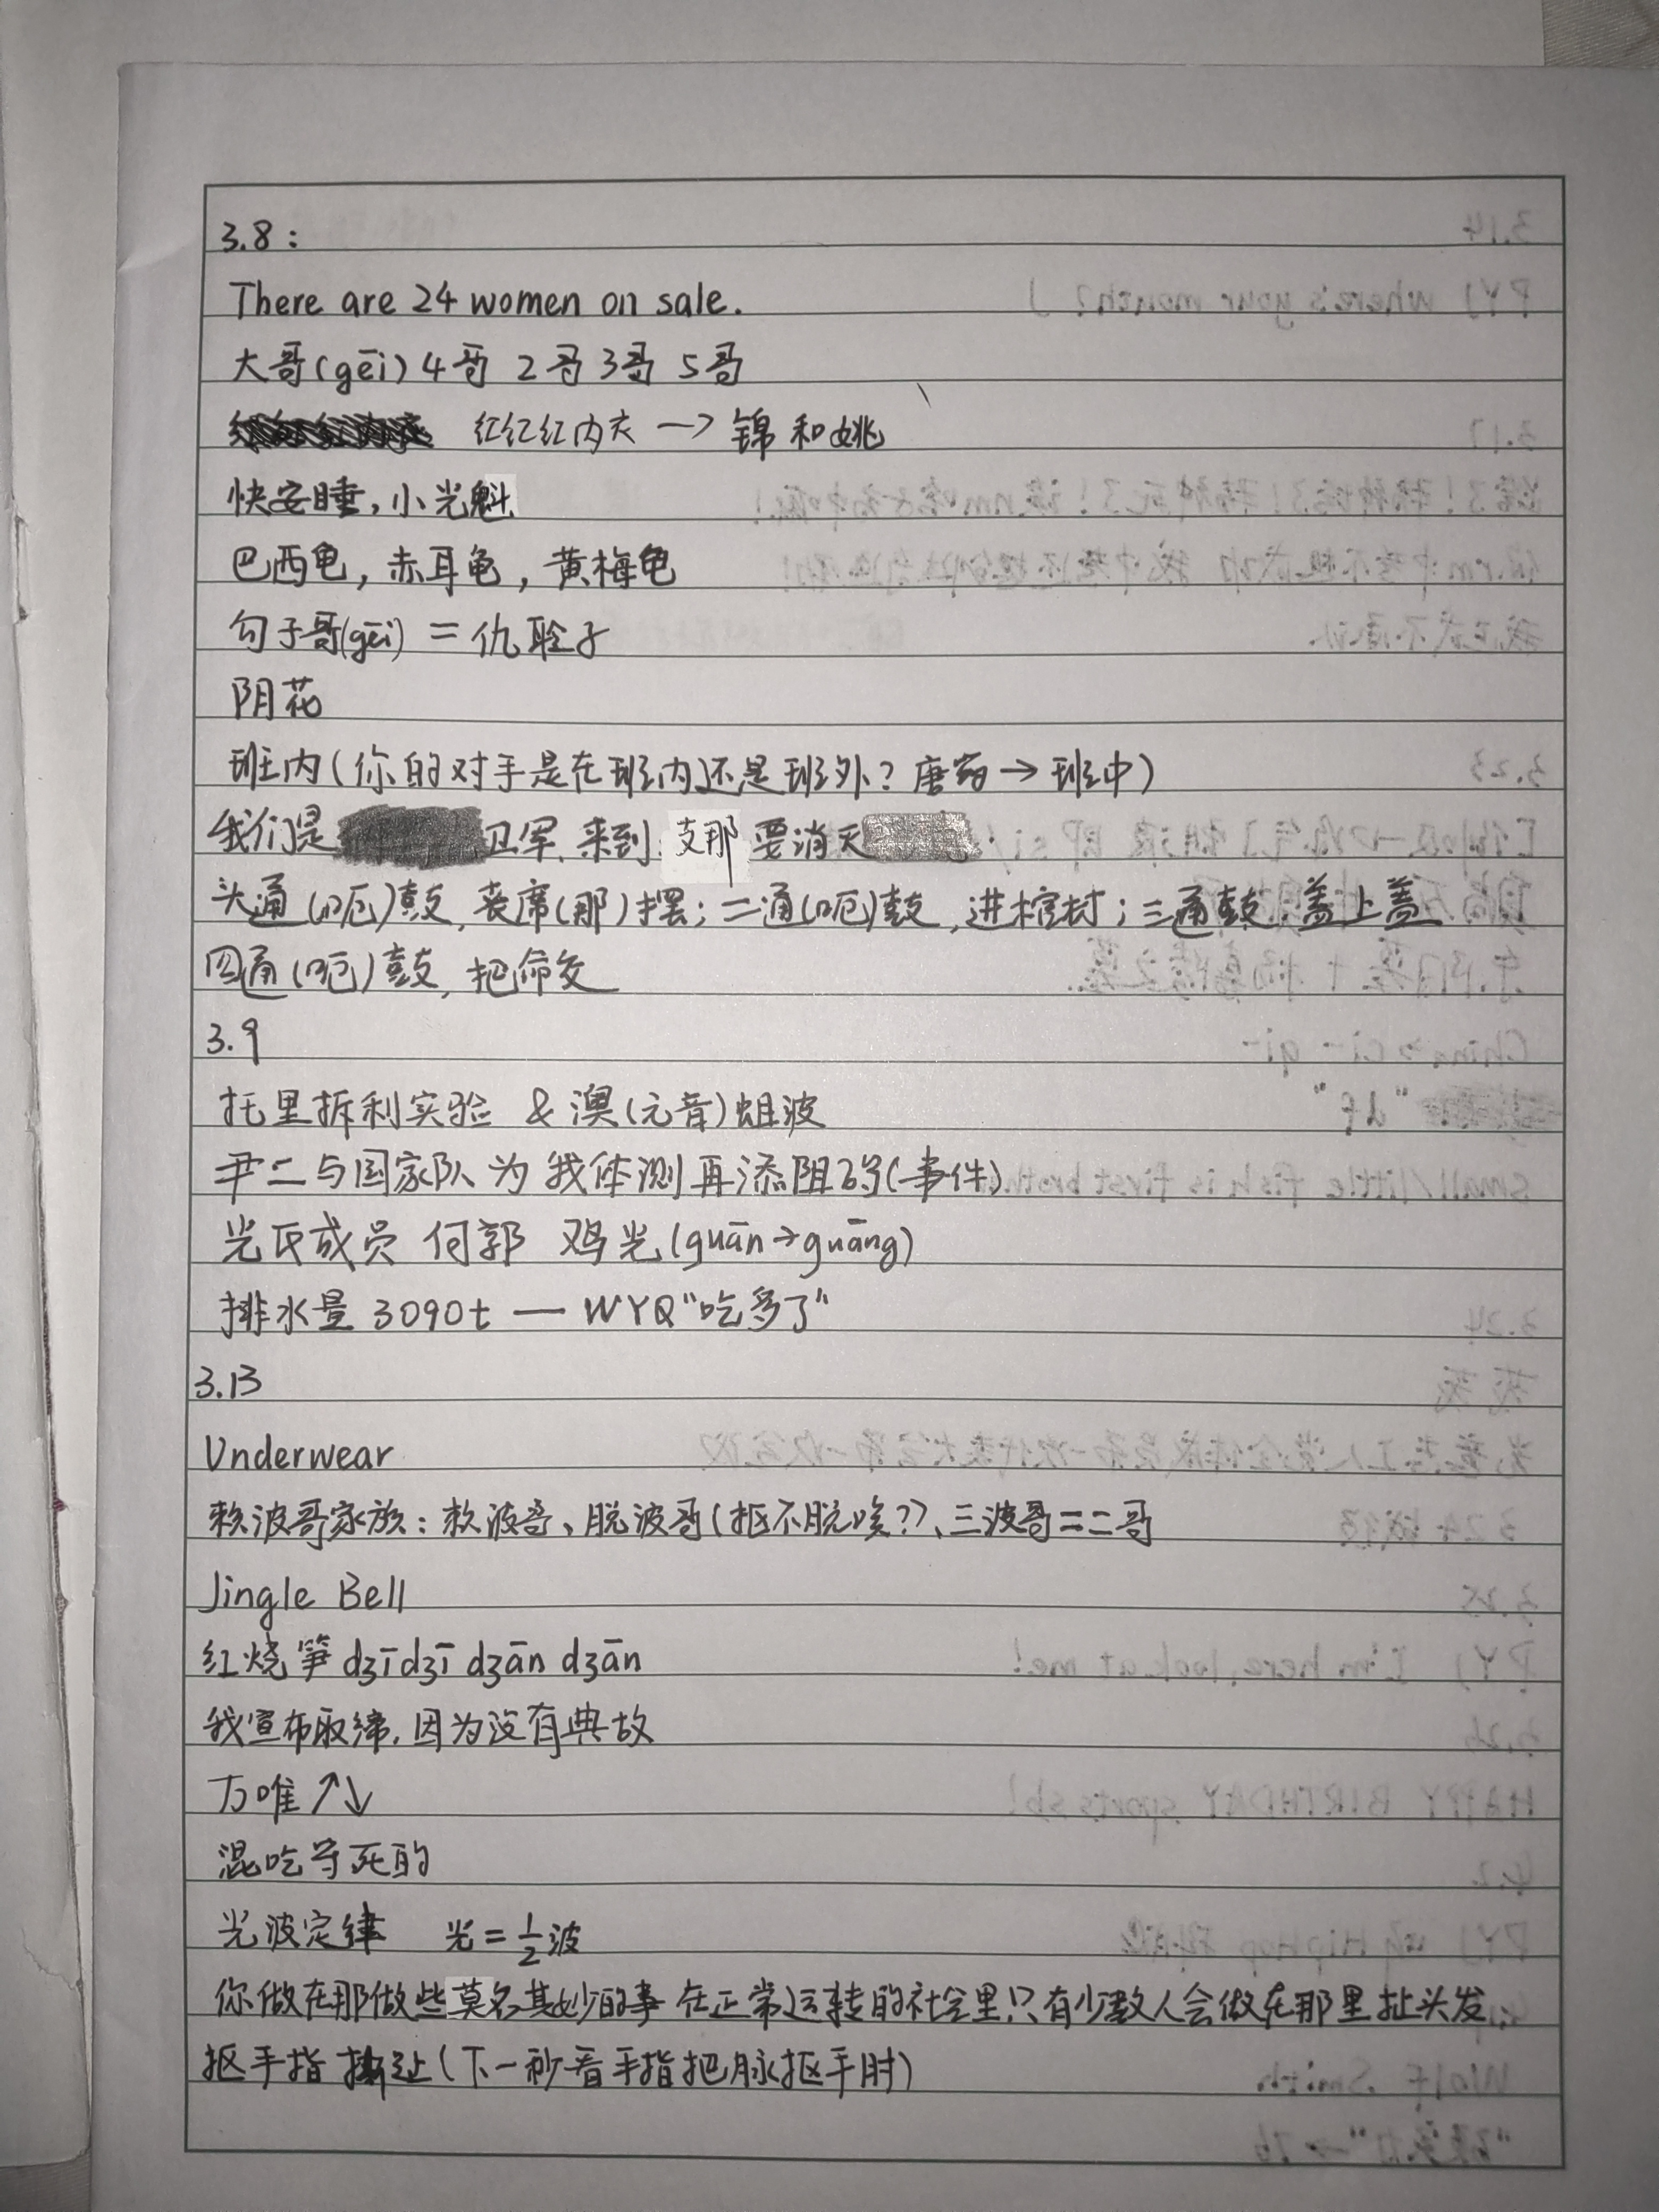 3.8：
There are 24 women on sale.
大哥(gēi) 4哥 2哥 3哥 5哥
红红红内衣 → 锦和姚
快安睡，小光魁
巴西龟，赤耳龟，黄梅龟
句子哥(gēi) = 仇
阴花
班内(你的对手是在班内还是班外？唐 → 班中)
我们是 卫军，来到支那要消灭
头通(呃)鼓，丧席(那)摆；二通(呃)鼓，进棺材；三通鼓，盖上盖
四通(呃)鼓，把命交
3.9
托里拆利实验 & 澳(元音)蛆波
尹二与国家队为我体测再添阻碍(事件)
光氏成员 何郭 鸡光(guān→guāng)
排水量 3090t — WYQ"吃多了"
3.13
Underwear
赖波哥家族：赖波哥、脱波哥(抠不脱唉??)、三波哥=二哥
Jingle Bell
红烧笋 dʒī dʒī dʒān dʒān
我宣布取缔，因为没有典故
万唯↗↘
混吃等死的
光波定律 光=1/2波
你做在那做些莫名其妙的事 在正常运转的社会里只有少数人会做在那里扯头发，
抠手指 (下一秒看手指把脉抠手肘)